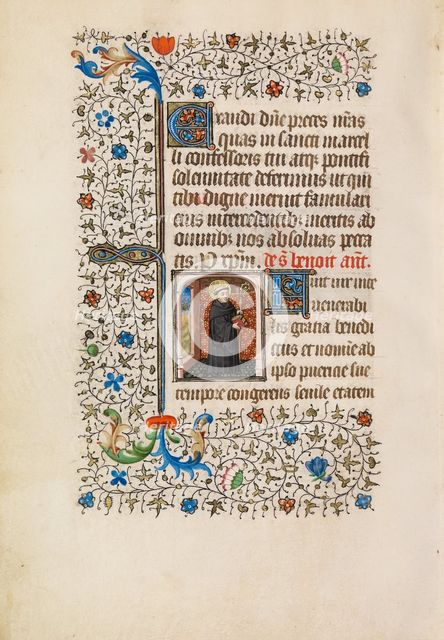 Exaudi dñe preces nr̃as
quas in sancti marcel
li confessoris tui atq₃ pontifi
solennitate deferimus ut qui
tibi digne meruit famulari
eius intercedentib₃ meritis ab
omnib₃ nos absoluas pecca
tis. P xp̃m. de s̃ benoit ant̃.
Fuit vir vite
venerabi
lis gratia benedi
ctus et nomine ab
ipso puericie sue
tempore cor gerens senile etatem